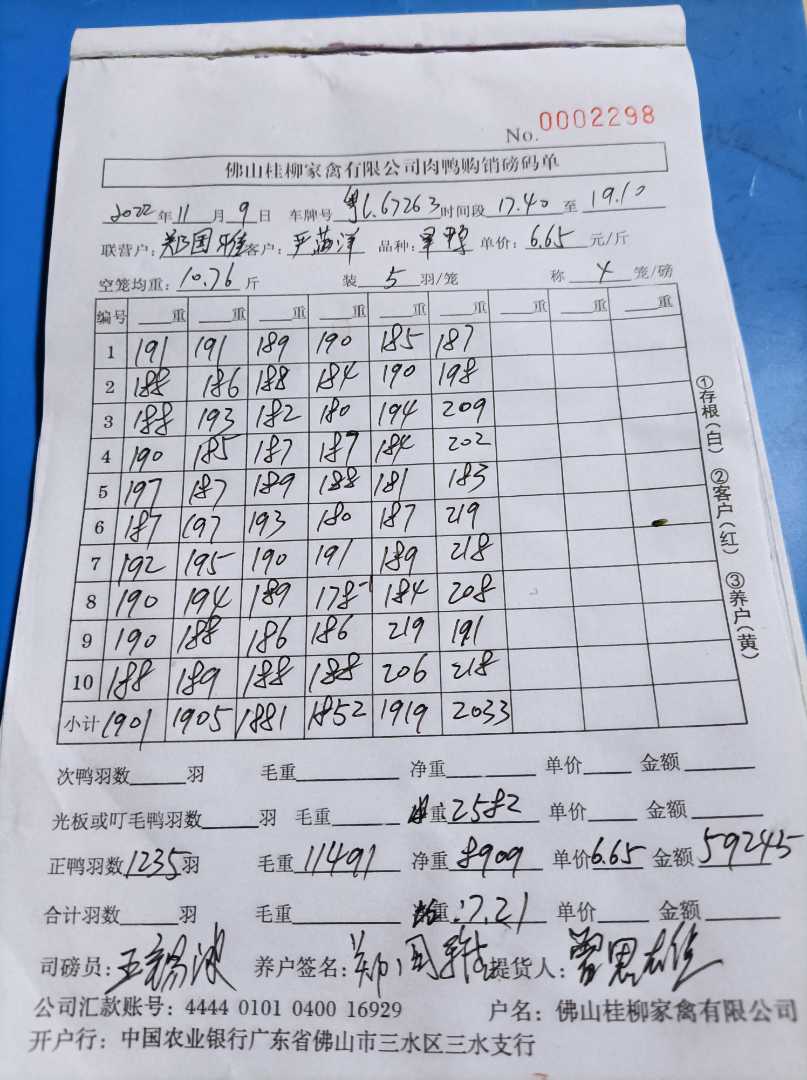 No. 0002298
佛山桂柳家禽有限公司肉鸭购销磅码单
2022年11月9日 车牌号 粤L.67263 时间段 17.40 至 19.10
联营户：郑国雅 客户：严苗洋 品种： 单价：6.65 元/斤
空笼均重：10.76 斤 装 5 羽/笼 称 4 笼/磅
编号 重 重 重 重 重 重 重 重 重
1 191 191 189 190 185 187
2 188 186 188 184 190 198
3 188 193 182 180 194 209
4 190 185 187 187 184 202
5 197 187 189 188 181 183
6 187 197 193 180 187 219
7 192 195 190 191 189 218
8 190 194 189 178 184 208
9 190 188 186 186 219 191
10 188 189 188 188 206 218
小计 1901 1905 1881 1852 1919 2033
①存根(白) ②客户(红) ③养户(黄)
次鸭羽数 羽 毛重 净重 单价 金额
光板或叮毛鸭羽数 羽 毛重 重 2582 单价 金额
正鸭羽数 1235 羽 毛重 11491 净重 8909 单价 6.65 金额 59245
合计羽数 羽 毛重 重 :7.21 单价 金额
司磅员：王锡波 养户签名：郑国雅 提货人：曾思雄
公司汇款账号：4444 0101 0400 16929 户名：佛山桂柳家禽有限公司
开户行：中国农业银行广东省佛山市三水区三水支行